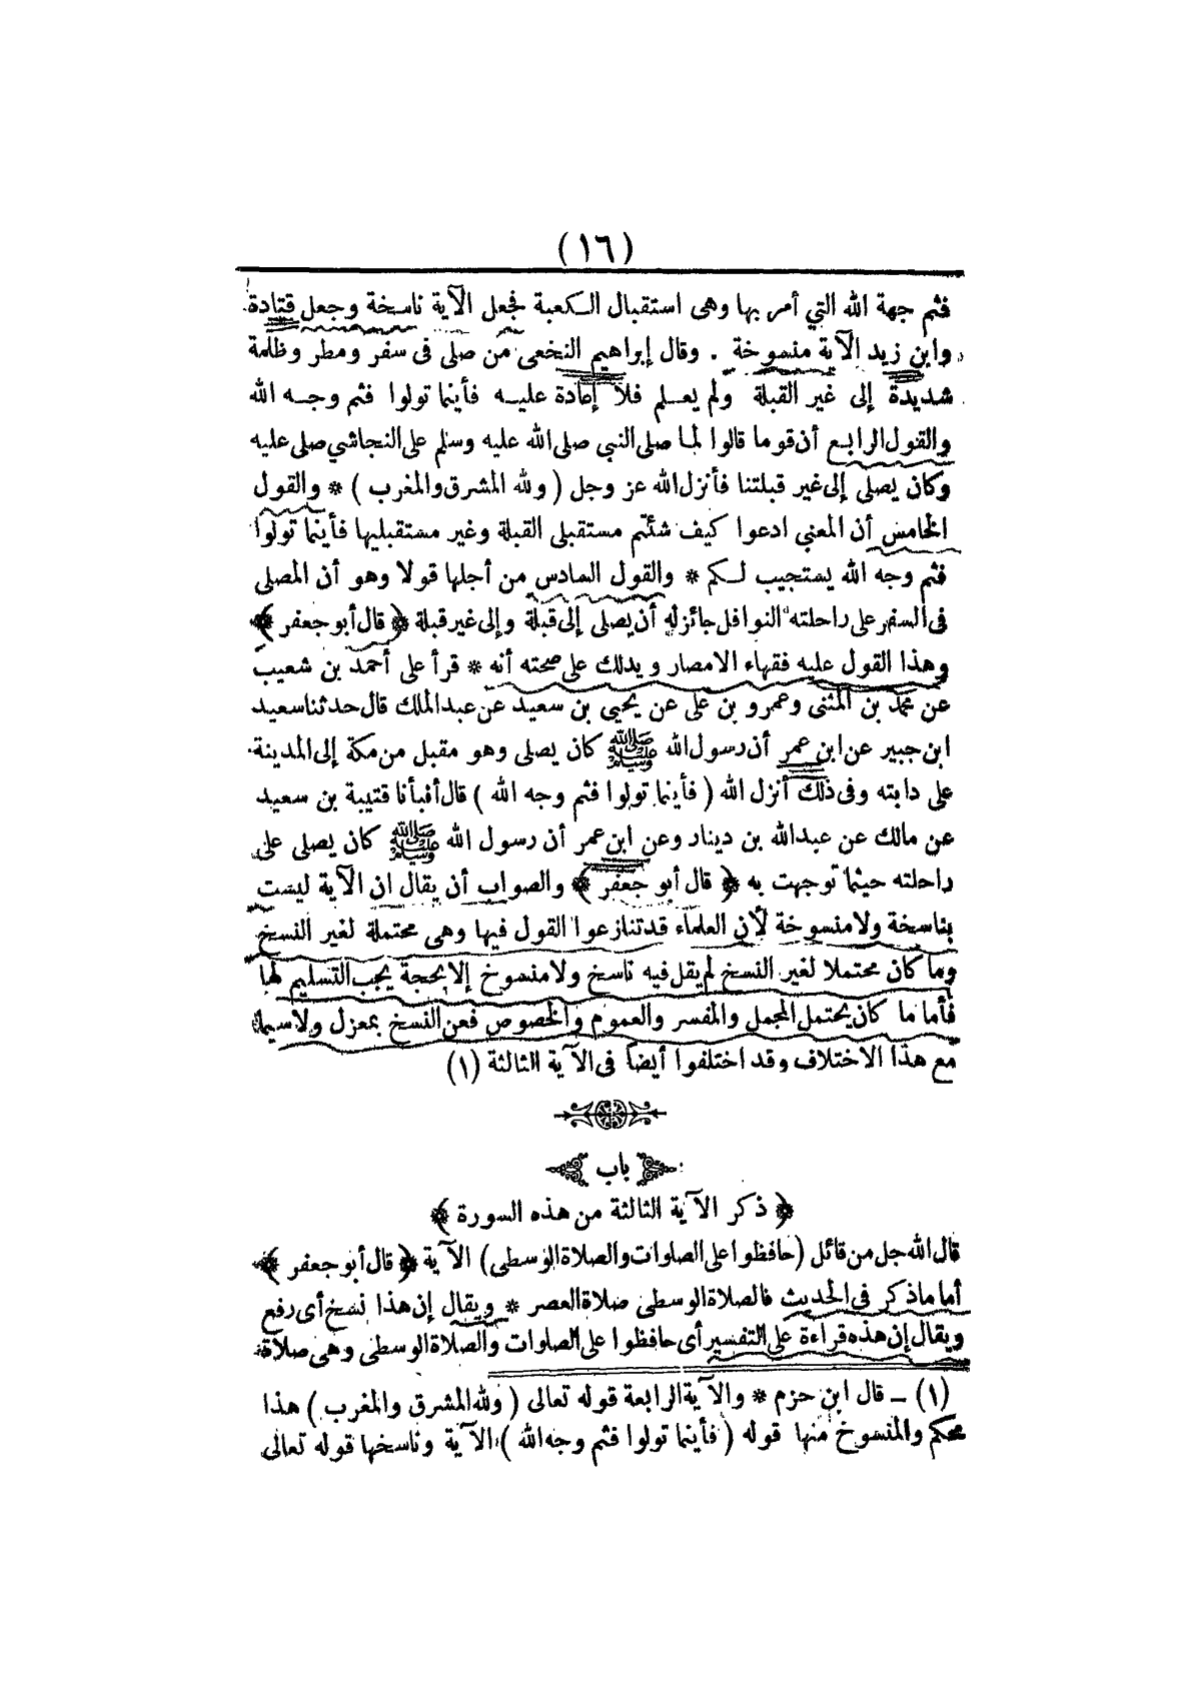 (١٦)
فثم جهة الله التي أمر بها وهى استقبال الكعبة فجعل الآية ناسخة وجعل قتادة
وابن زيد الآية منسوخة . وقال إبراهيم النخعى من صلى فى سفر ومطر وظلمة
شديدة إلى غير القبلة ولم يعلم فلا إعادة عليه فأينما تولوا فثم وجه الله
والقول الرابع أن قوما قالوا لما صلى النبي صلى الله عليه وسلم على النجاشي صلى عليه
وكان يصلى إلى غير قبلتنا فأنزل الله عز وجل ( ولله المشرق والمغرب ) * والقول
الخامس أن المعنى ادعوا كيف شئتم مستقبلى القبلة وغير مستقبليها فأينما تولوا
فثم وجه الله يستجيب لكم * والقول السادس من أجلها قولا وهو أن المصلى
فى السفر على راحلته النوافل جائز له أن يصلى إلى قبلة وإلى غير قبلة ﴿ قال أبو جعفر ﴾
وهذا القول عليه فقهاء الامصار ويدلك على صحته أنه * قرأ على أحمد بن شعيب
عن محمد بن المثنى وعمرو بن على عن يحيى بن سعيد عن عبد الملك قال حدثنا سعيد
ابن جبير عن ابن عمر أن رسول الله ﷺ كان يصلى وهو مقبل من مكة إلى المدينة
على دابته وفى ذلك أنزل الله ( فأينما تولوا فثم وجه الله ) قال أنبأنا قتيبة بن سعيد
عن مالك عن عبد الله بن دينار وعن ابن عمر أن رسول الله ﷺ كان يصلى على
راحلته حيثما توجهت به ﴿ قال أبو جعفر ﴾ والصواب أن يقال ان الآية ليست
بناسخة ولا منسوخة لأن العلماء قد تنازعوا القول فيها وهى محتملة لغير النسخ
وما كان محتملا لغير النسخ لم يقل فيه ناسخ ولا منسوخ إلا بحجة يجب التسليم لها
فأما ما كان يحتمل المجمل والمفسر والعموم والخصوص فعن النسخ بمعزل ولاسيما
مع هذا الاختلاف وقد اختلفوا أيضاً فى الآية الثالثة (١)
باب
﴿ ذكر الآية الثالثة من هذه السورة ﴾
قال الله جل من قائل (حافظوا على الصلوات والصلاة الوسطى) الآية ﴿ قال أبو جعفر ﴾
أما ما ذكر فى الحديث فالصلاة الوسطى صلاة العصر * ويقال إن هذا نسخ أى رفع
ويقال إن هذه قراءة على التفسير أى حافظوا على الصلوات والصلاة الوسطى وهى صلاة
(١) ـ قال ابن حزم * والآية الرابعة قوله تعالى ( ولله المشرق والمغرب ) هذا
محكم والمنسوخ منها قوله ( فأينما تولوا فثم وجه الله ) الآية وناسخها قوله تعالى